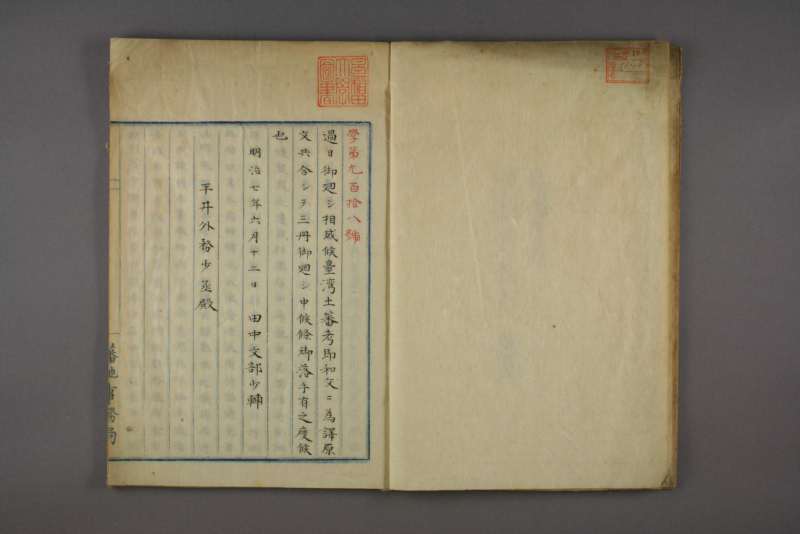 學第九百拾八號
過日御廻シ相成候臺湾土蕃考即和文ニ為譯原
文共合シテ三冊御廻シ申候條御落手有之度候
也
明治七年六月十三日 田中文部少輔
平井外務少丞殿
蕃地事務局